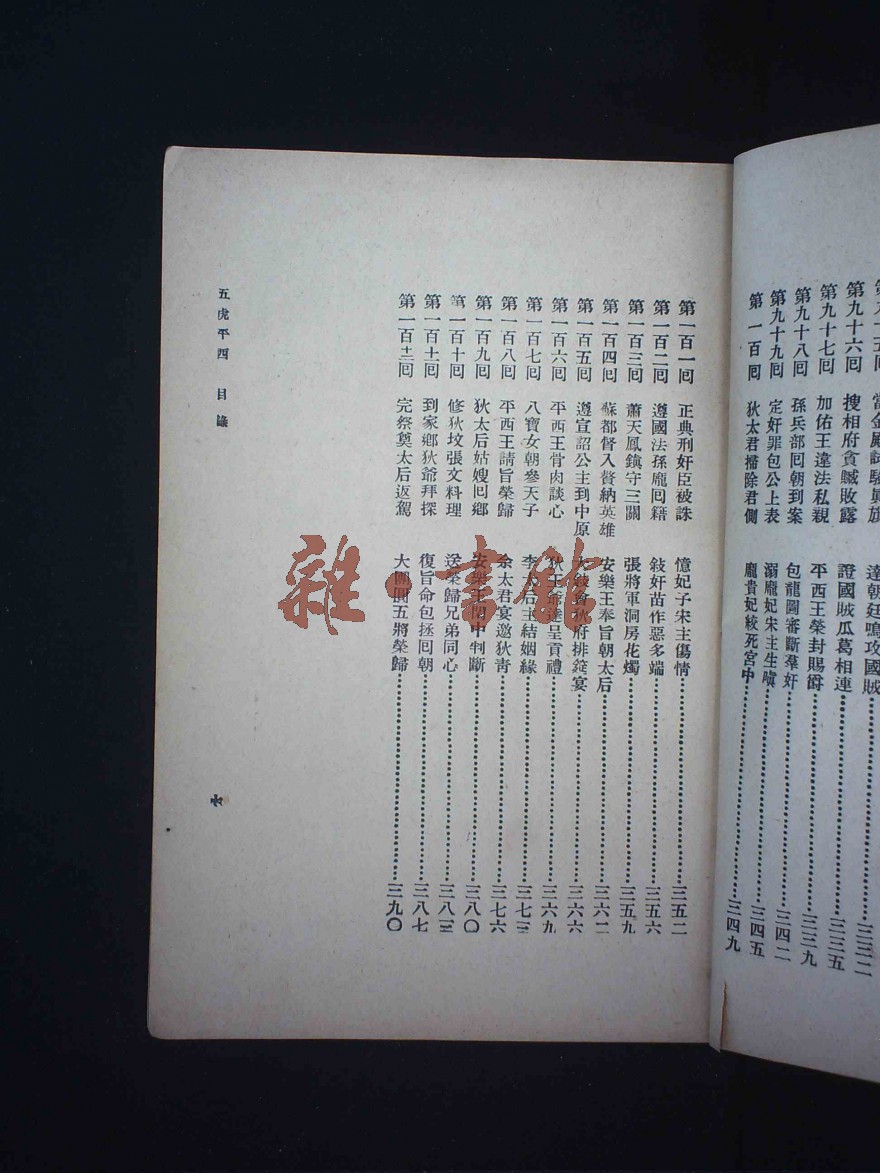 當金殿試騐
第九十六回 搜相府貪贓敗露 證國賊瓜葛相連 三三五
第九十七回 加佑王違法私親 平西王榮封賜爵 三三九
第九十八回 孫兵部回朝到案 包龍圖審斷羣奸 三四二
第九十九回 定奸罪包公上表 溺龐妃宋主生嗔 三四五
第一百回 狄太君掃除君側 龐貴妃絞死宮中 三四九
第一百一回 正典刑奸臣被誅 憶妃子宋主傷情 三五二
第一百二回 遵國法孫龐回籍 敍奸苗作惡多端 三五六
第一百三回 蕭天鳳鎮守三關 張將軍洞房花燭 三五九
第一百四回 蘇都督入贅納英雄 安樂王奉旨朝太后 三六二
第一百五回 遵宣詔公主到中原 大敍會狄府排筵宴 三六六
第一百六回 平西王骨肉談心 狄王爺進呈貢禮 三六九
第一百七回 八寶女朝參天子 李太后主結姻緣 三七三
第一百八回 平西王請旨榮歸 余太君宴邀狄青 三七六
第一百九回 狄太后姑嫂回鄉 安樂王閨中判斷 三八〇
第一百十回 修狄墳張文料理 送榮歸兄弟同心 三八三
第一百十一回 到家鄉狄爺拜探 復旨命包拯回朝 三八七
第一百十二回 完祭奠太后返駕 大團圓五將榮歸 三九〇
五虎平西 目錄
雜·書館